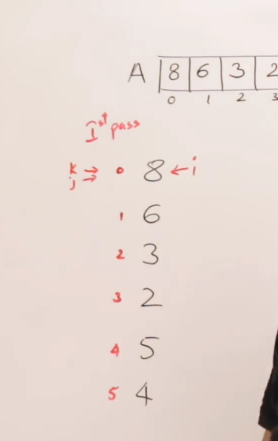 A 8 6 3 2
0 1 2 3
Ist pass
k → 0 8 ← i
j →
1 6
2 3
3 2
4 5
5 4